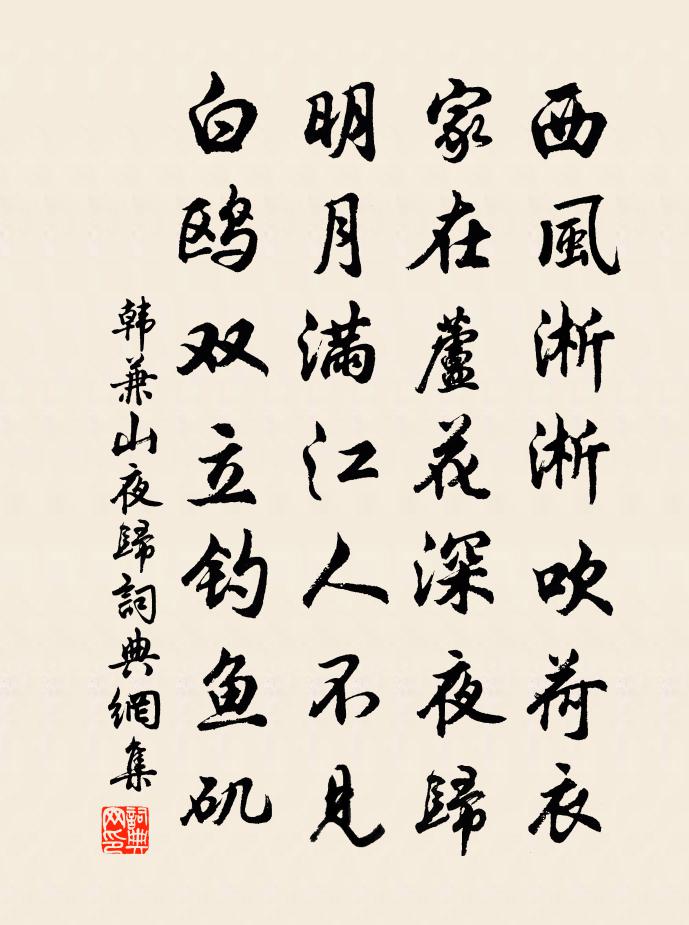 西風淅淅吹荷衣
家在蘆花深夜歸
明月滿江人不見
白鸥双立钓鱼矶
韩蒹山夜歸詞典網集
詞典网印